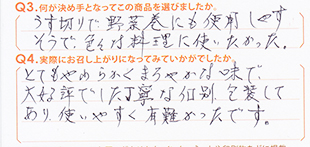 Q3.何が決め手となってこの商品を選びましたか。
うす切りで野菜巻にも使用しやす
そうで、色々な料理に使いたかった。
Q4.実際にお召し上がりになってみていかがでしたか。
とてもやわらかくまろやかな味で、
大好評でした丁寧な個別包装して
あり、使いやすく有難かったです。